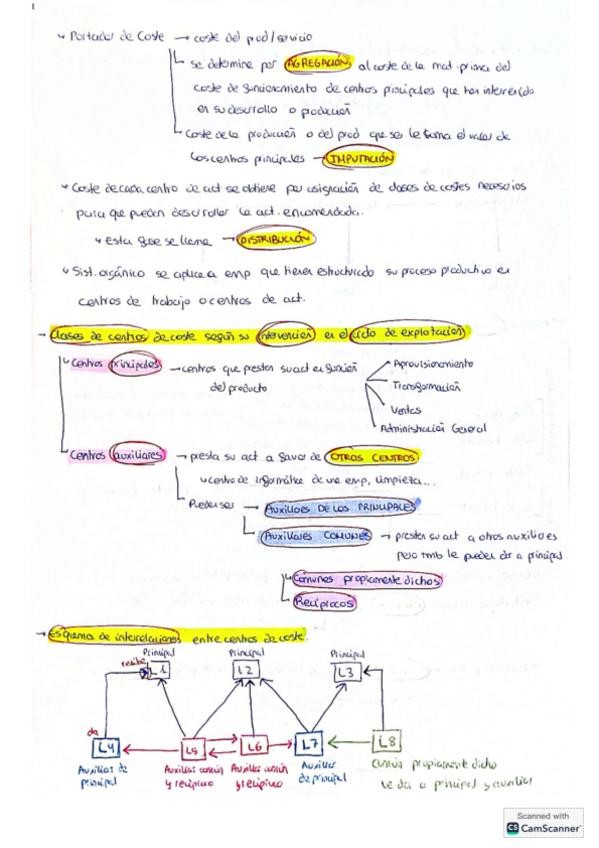 ↳ Portador de Coste → coste del prod/servicio
↳ se determina por AGREGACIÓN, al coste de la mat. prima del
coste de funcionamiento de centros principales que han intervenido
en su desarrollo o producción
↳ Coste de la producción o del prod que se le suma el valor de
los centros principales → IMPUTACIÓN
↳ Coste de cada centro de act se obtiene por asignación de clases de costes necesarios
para que puedan desarrollar la act. encomendada.
↳ Esta fase se llama → DISTRIBUCIÓN
↳ Sist. orgánico se aplica a emp que tienen estructurado su proceso productivo en
centros de trabajo o centros de act.
→ Clases de centros de coste según su intervención en el ciclo de explotación
↳ Centros principales → centros que prestan su act en función
del producto
Aprovisionamiento
Transformación
Ventas
Administración General
↳ Centros auxiliares → presta su act a favor de OTROS CENTROS
↳ centro de informática de una emp, limpieza...
↳ Pueden ser → AUXILIARES DE LOS PRINCIPALES
↳ AUXILIARES COMUNES → prestan su act a otros auxiliares
pero tmb le pueden dar a principal
↳ Comunes propiamente dichos
↳ Recíprocos
→ Esquema de interrelaciones entre centros de coste.
Principal Principal Principal
recibe L1 L2 L3
da
L4 L5 L6 L7 L8
Auxiliar de
principal
Auxiliar común
y recíproco
Auxiliar común
y recíproco
Auxiliar
de principal
Común propiamente dicho
le da a principal y auxiliar
Scanned with
CS CamScanner